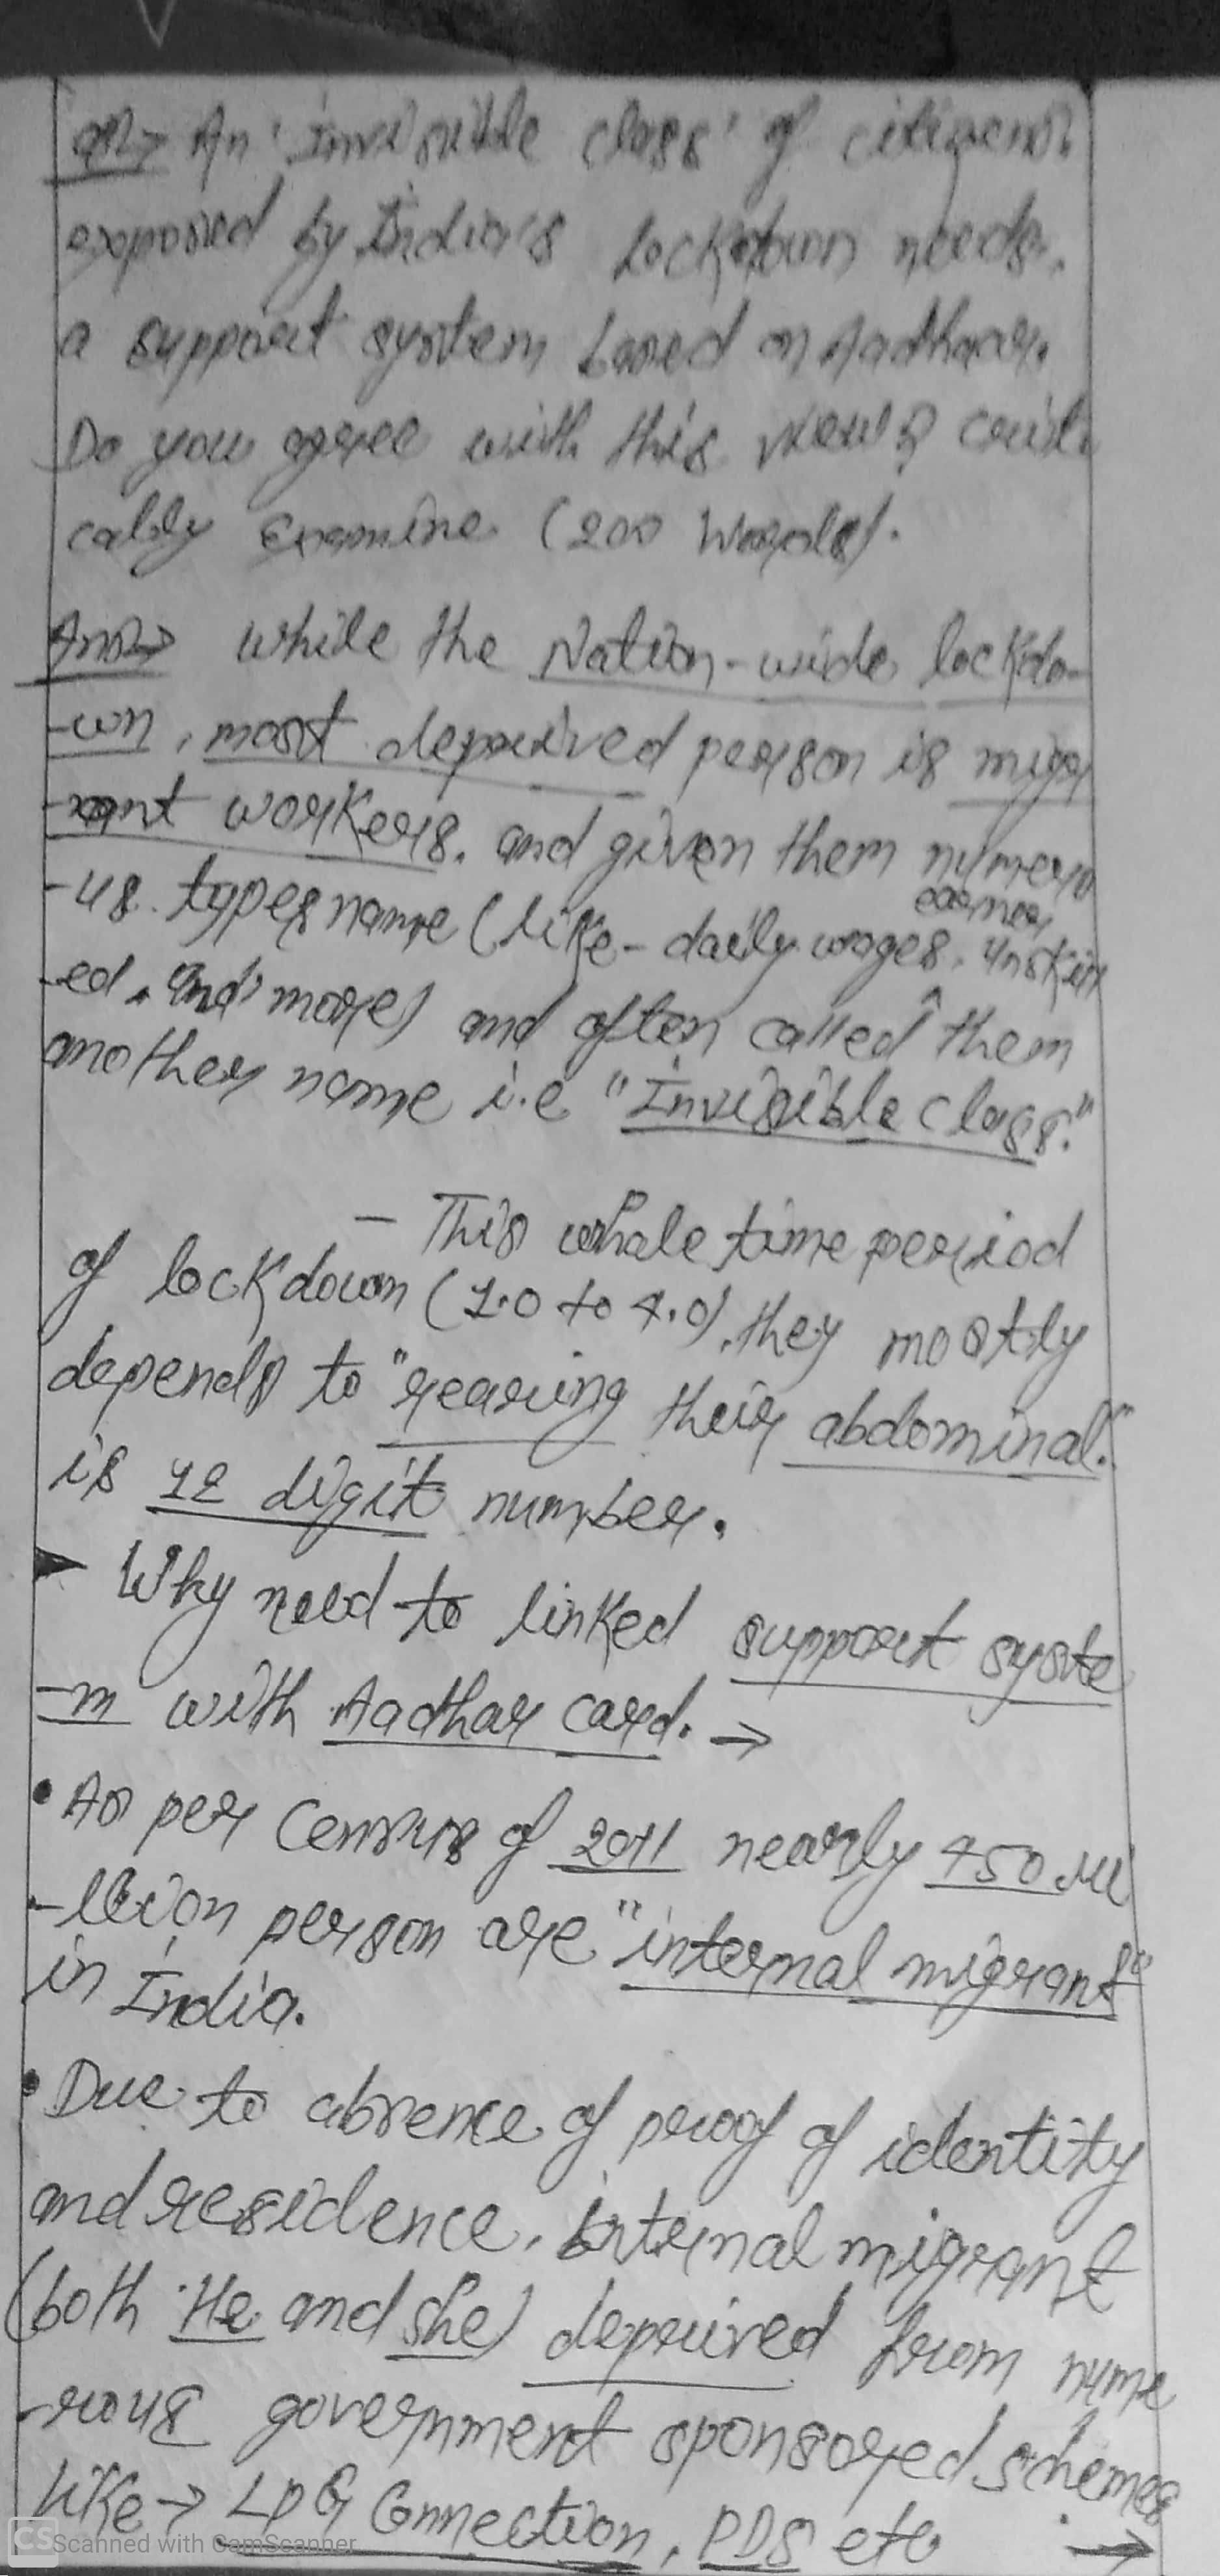 Q2→ An 'Invisible class' of citizens
exposed by India's Lockdown needs
a support system based on Aadhaar.
Do you agree with this view? criti
cally Examine (200 Words).
Ans→ While the Nation-wide lockdo-
-wn, most deprived person is migr
-rant workers. and given them numero
-us types name (like - daily wages earner, unskill
-ed, and more) and often called them
another name i.e "Invisible Class."
- This whole time period
of lockdown (1.0 to 4.0), they mostly
depends to "rearing their abdominal."
is 12 digit number.
Why need to linked support syste
-m with Aadhar card. →
• As per Census of 2011 nearly 450 Mi
-llion person are "internal migrant"
in India.
• Due to absence of proof of identity
and residence, internal migrant
(both He and she) deprived from nume
-rous government sponsored schemes
like → LPG Connection, PDS etc →
CS Scanned with CamScanner